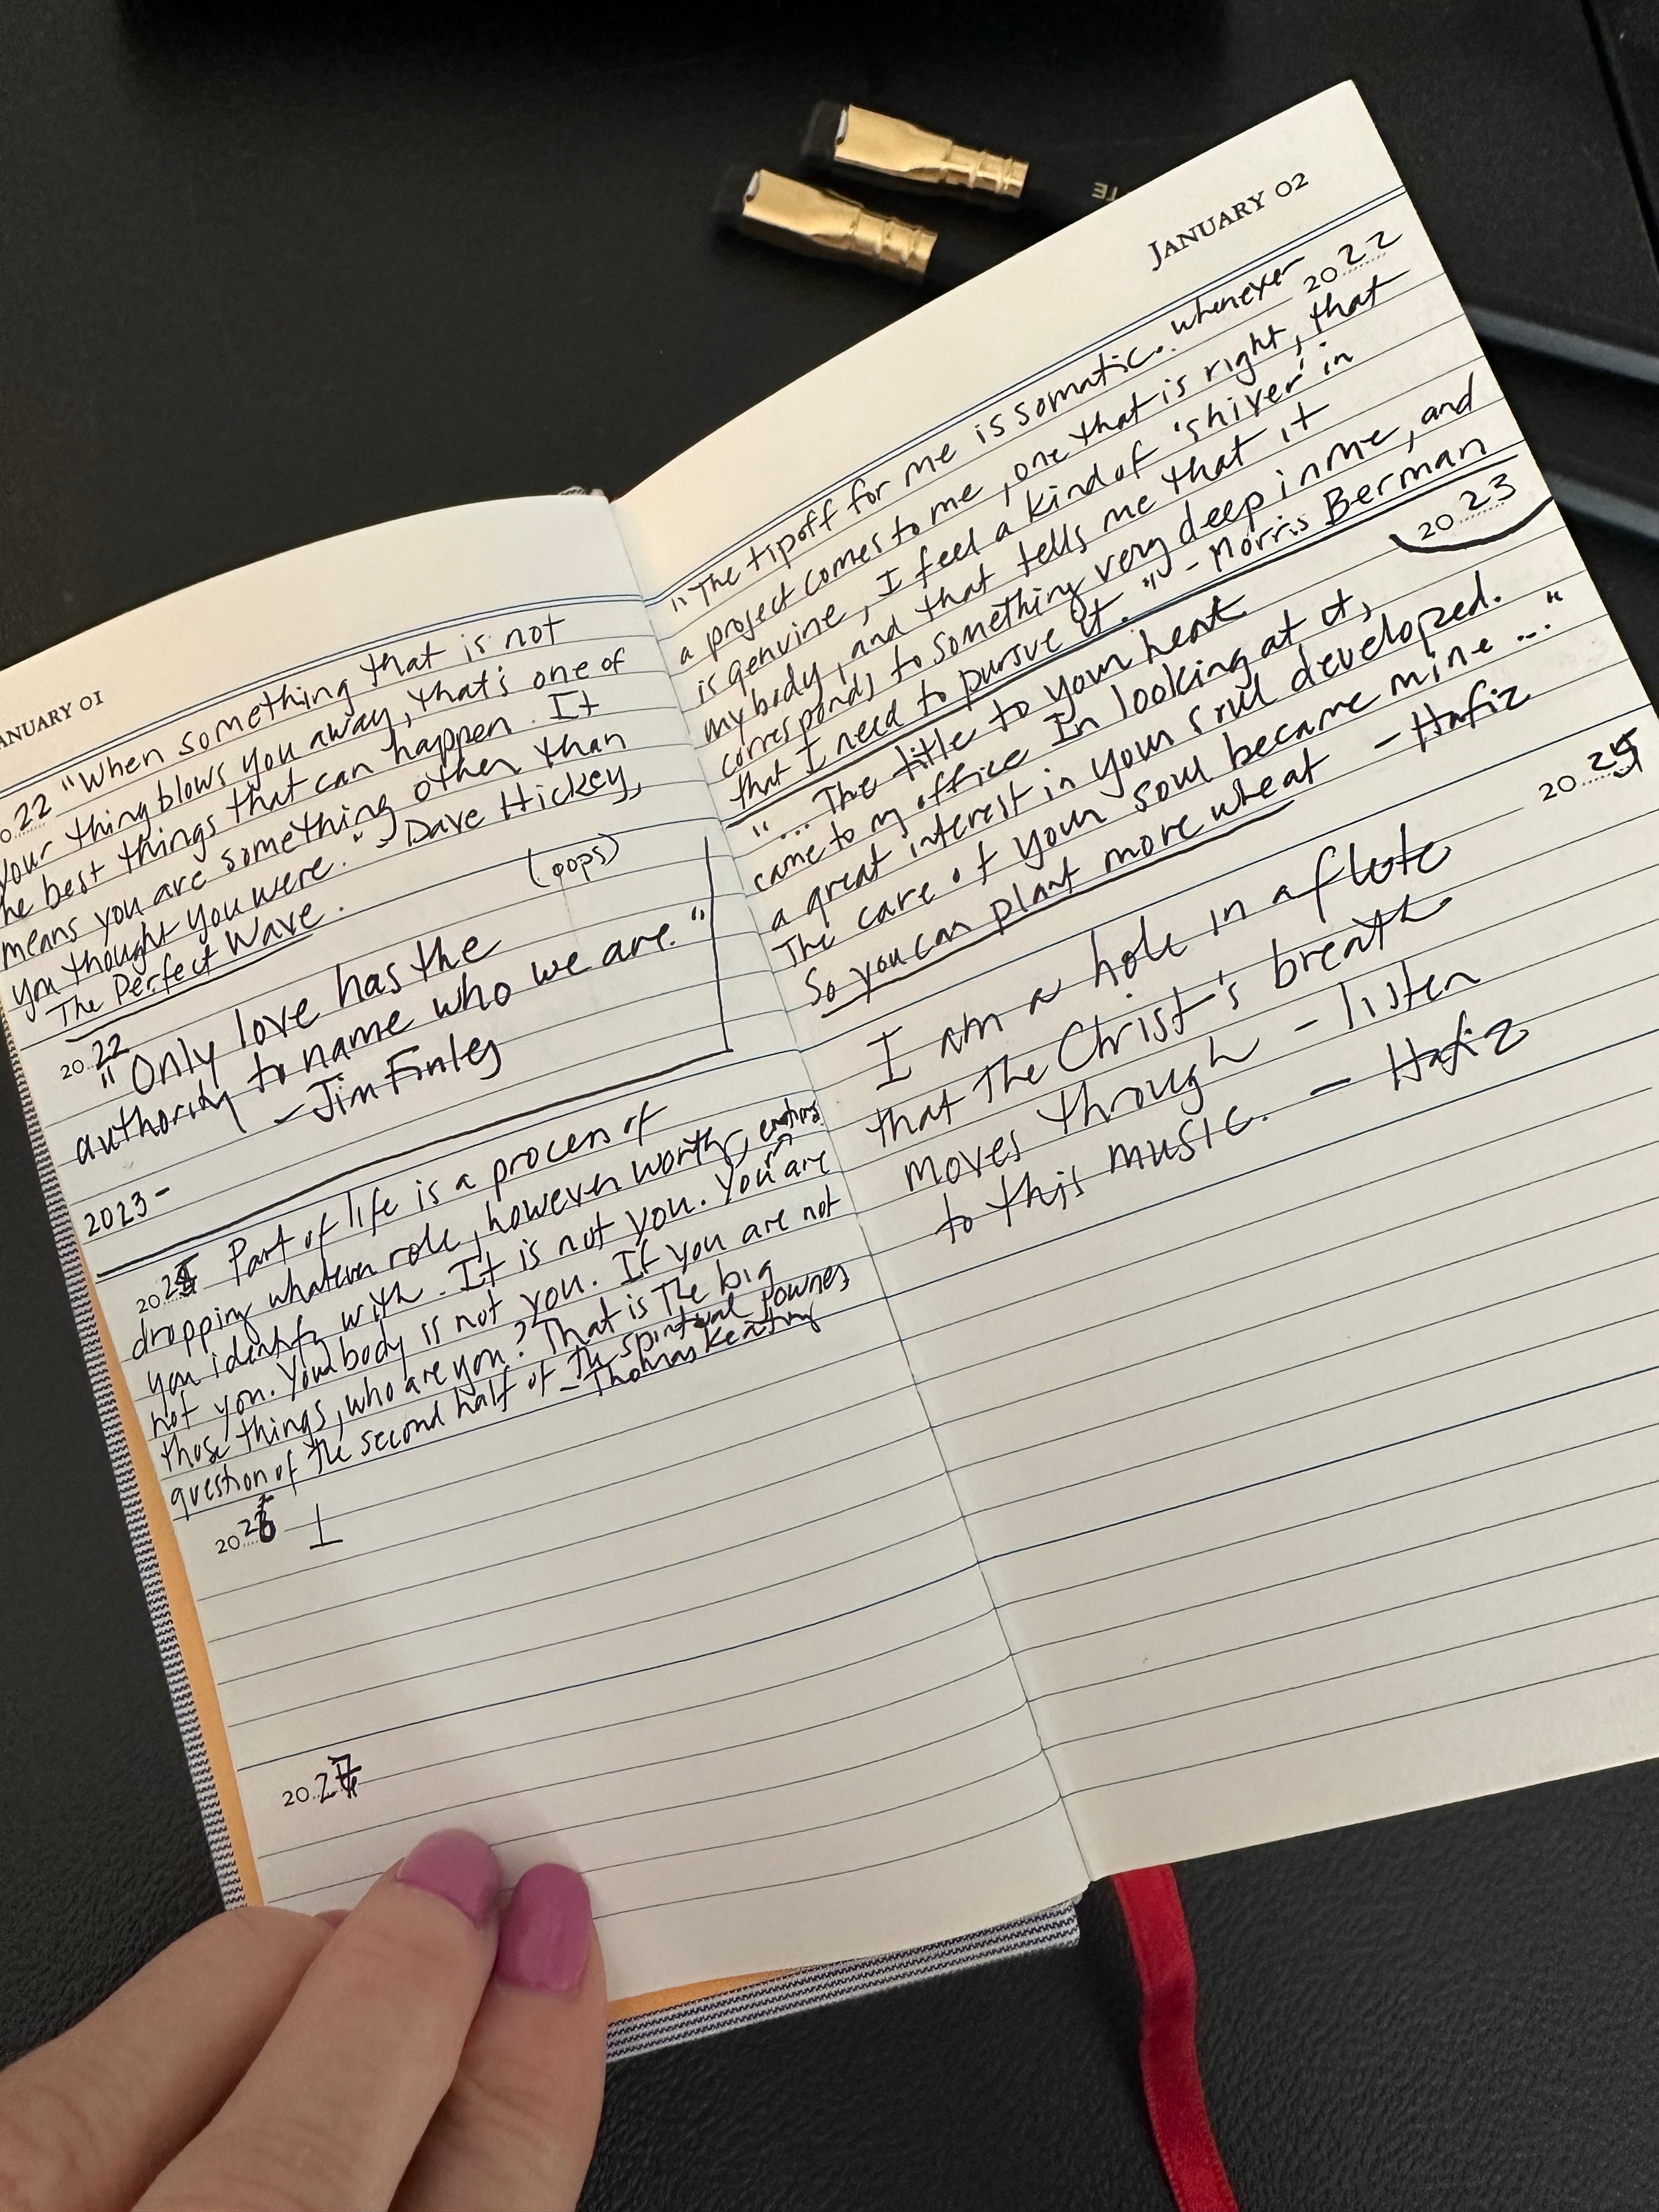 JANUARY 01
2022 "When something that is not
your thing blows you away, that's one of
the best things that can happen. It
means you are something other than
you thought you were." - Dave Hickey,
The Perfect Wave.
(oops)
2022
"Only love has the
authority to name who we are."
- Jim Finley
2023-
2025 Part of life is a process of
dropping whatever role, however worthy,
you identify with. It is not you. Your emotions are
not you. Your body is not you. If you are not
those things, who are you? That is the big
question of the second half of the spiritual journey
- Thomas Keating
2026 I
2027
JANUARY 02
2022
"The tipoff for me is somatic. whenever
a project comes to me, one that is right, that
is genuine, I feel a kind of 'shiver' in
my body, and that tells me that it
corresponds to something very deep in me, and
that I need to pursue it." - Morris Berman
2023
"... The title to your heart
came to my office In looking at it,
a great interest in your soul developed.
The care of your soul became mine ..."
So you can plant more wheat - Hafiz
2025
I am a hole in a flute
that The Christ's breath
moves through - listen
to this music. - Hafiz